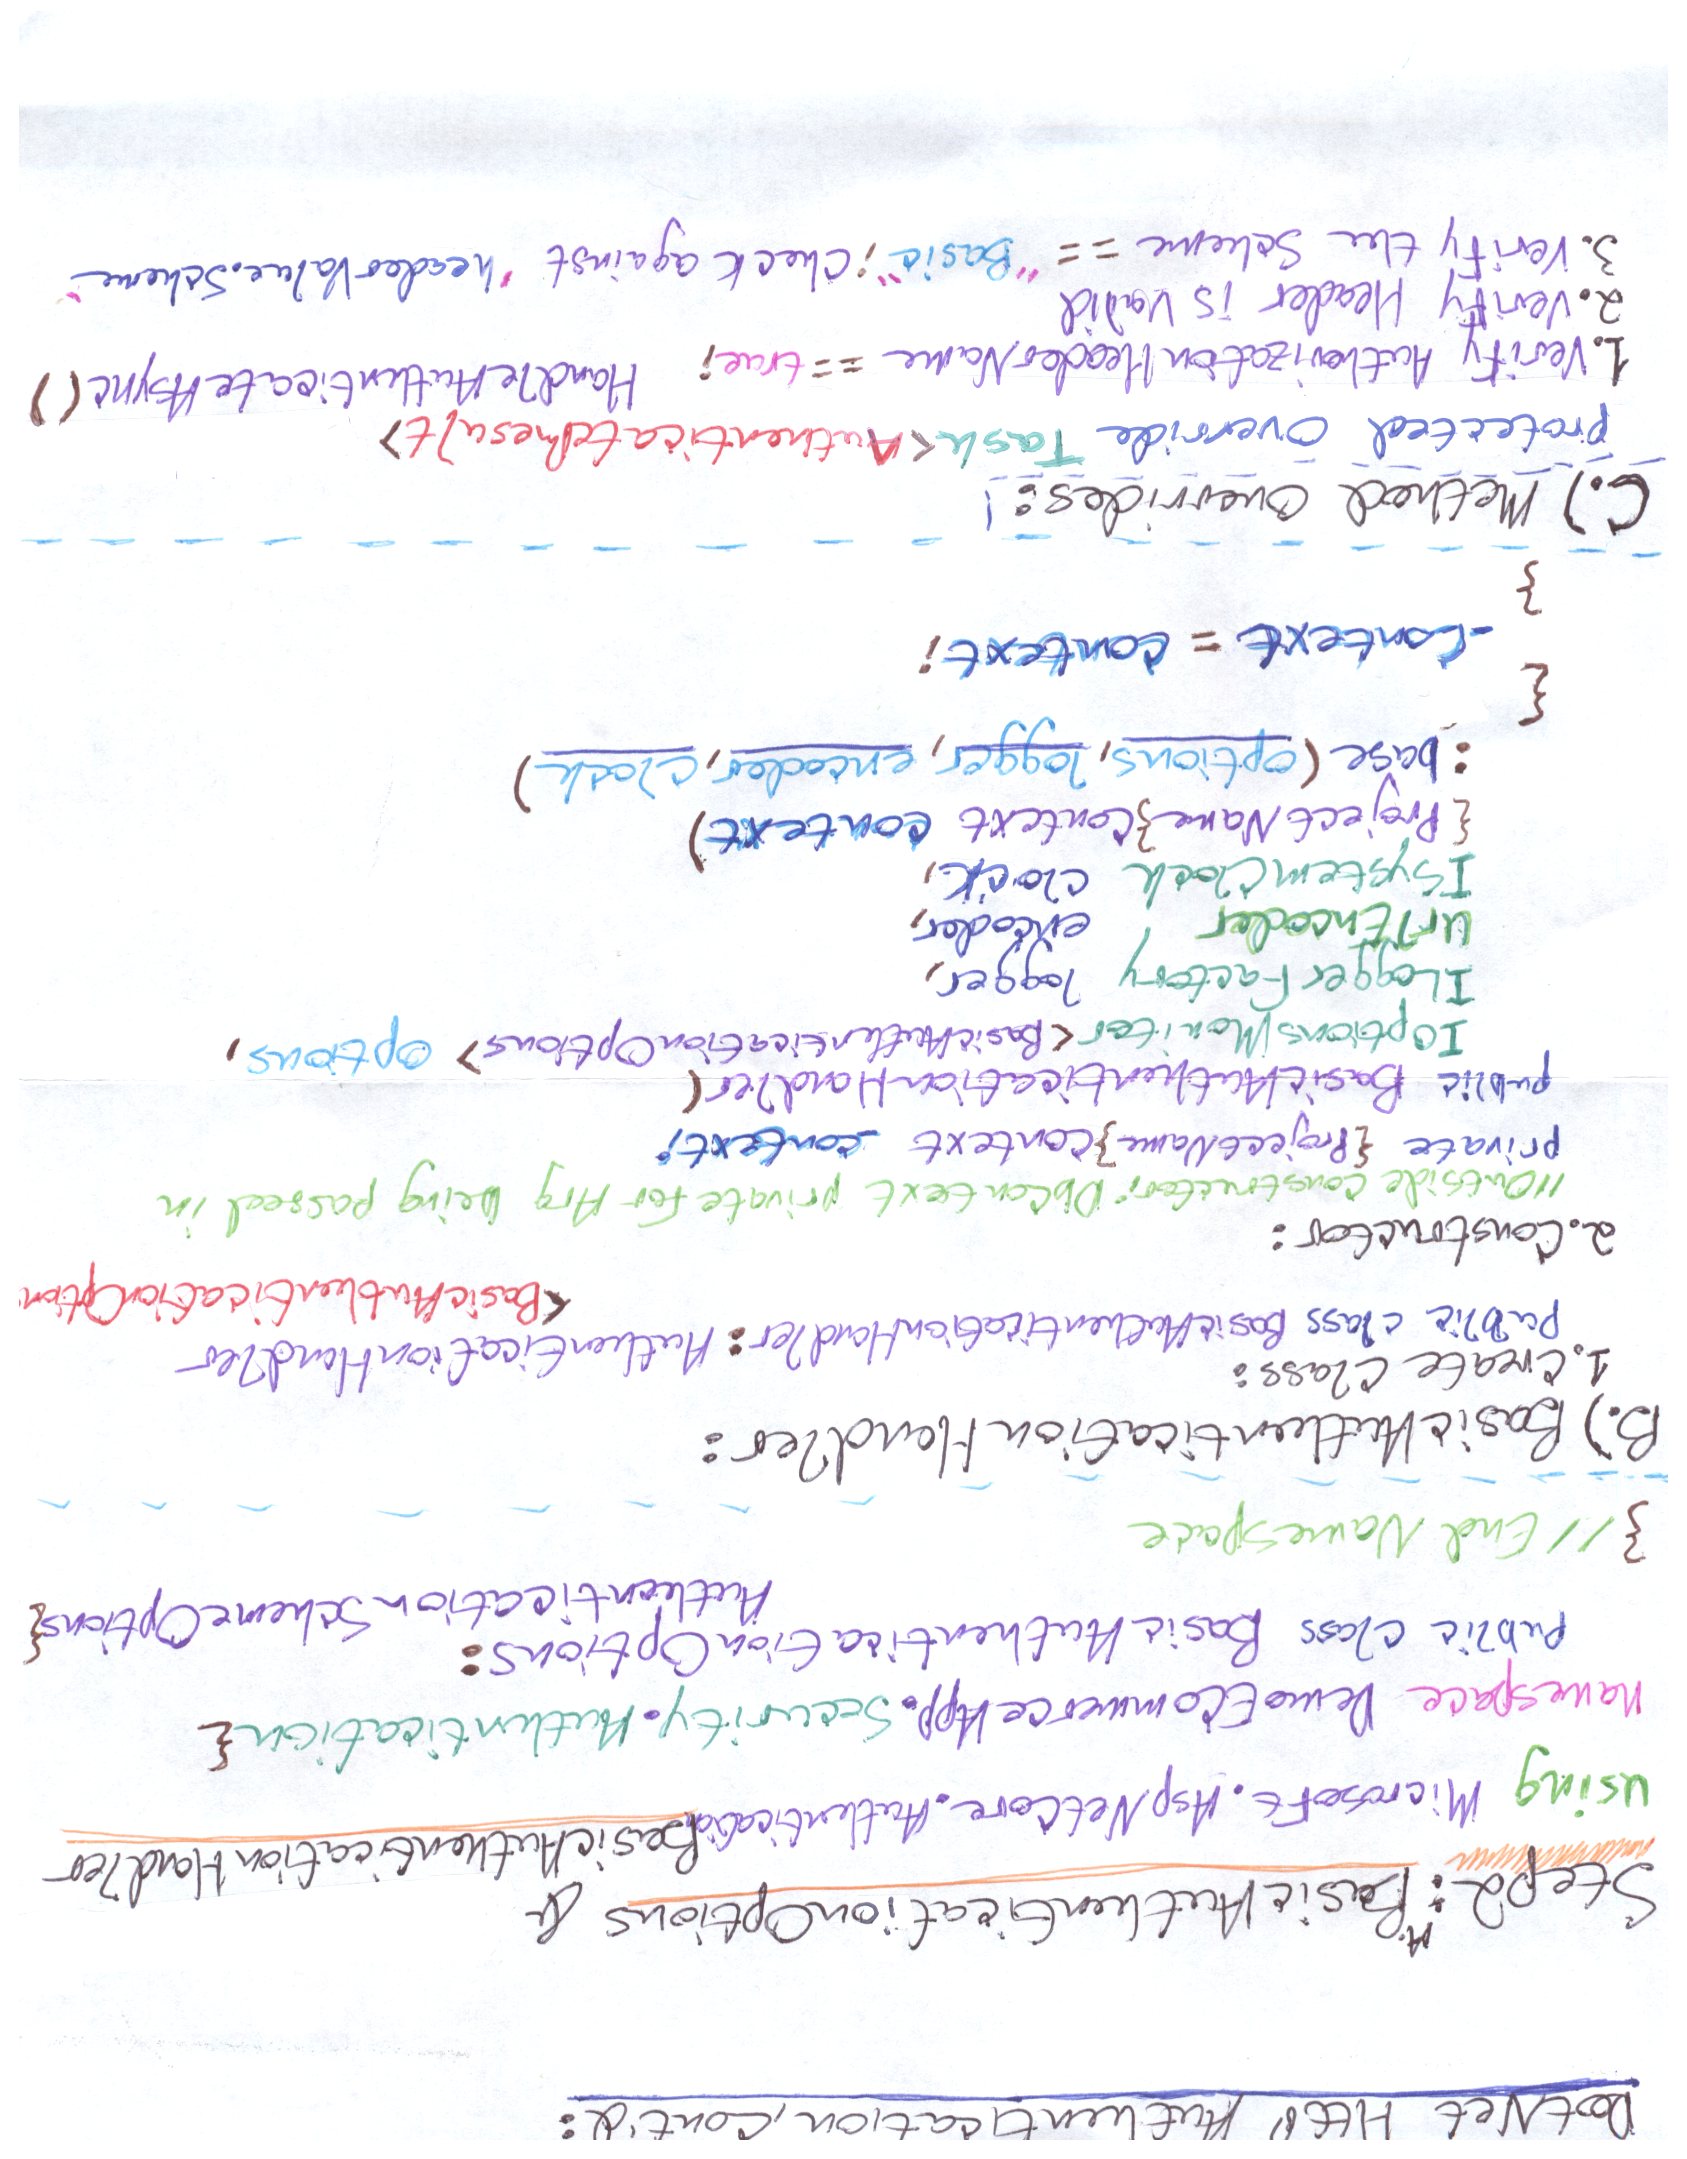 DotNet Http Authentication, Cont'd:
Step2: A. BasicAuthenticationOptions &
BasicAuthenticationHandler
using Microsoft.AspNetCore.Authentication
namespace DemoECommerceApp.Security.Authentication{
public class BasicAuthenticationOptions:
AuthenticationSchemeOptions{
} // End Namespace
B.) BasicAuthenticationHandler:
1. Create Class:
public class BasicAuthenticationHandler: AuthenticationHandler
<BasicAuthenticationOption
2. Constructor:
//Outside constructor; DbContext private for Arg being passed in
private {ProjectName}Context _context;
public BasicAuthenticationHandler(
IOptionsMonitor<BasicAuthenticationOptions> options,
ILoggerFactory logger,
UrlEncoder encoder,
ISystemClock clock,
{ProjectName}Context context)
:base(options, logger, encoder, clock)
{
_context = context;
}
C.) Method Overrides:!
protected override Task<AuthenticateResult>
HandleAuthenticateAsync()
1. Verify AuthorizationHeaderName == true;
2. Verify Header is Valid
3. Verify the Scheme == "Basic"; Check against "headerValue.Scheme"